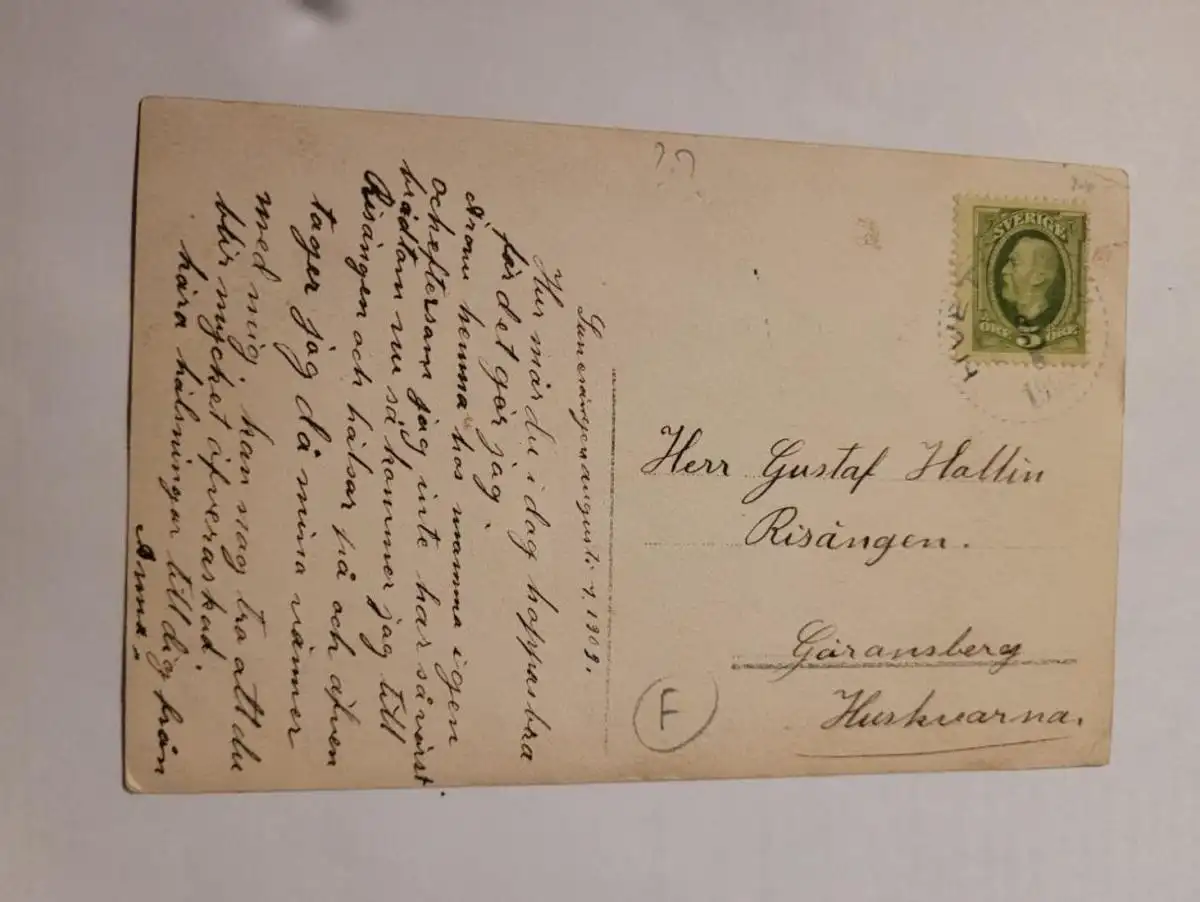 augusti 7. 1909.
Hur mår du i dag hoppas bra
för det gör jag,
Är nu hemma hos mamma igen
och eftersom jag inte har så värst
brådtom nu så kommer jag till
Risången och hälsar på och äfven
tager jag då mina vänner
med mig, kan nog tro att du
blir mycket öfveraskad.
kära hälsningar till dig från
Anna.
SVERIGE
5
ÖRE ÖRE
Herr Gustaf Hallin
Risången.
Göransberg
Huskvarna.
F